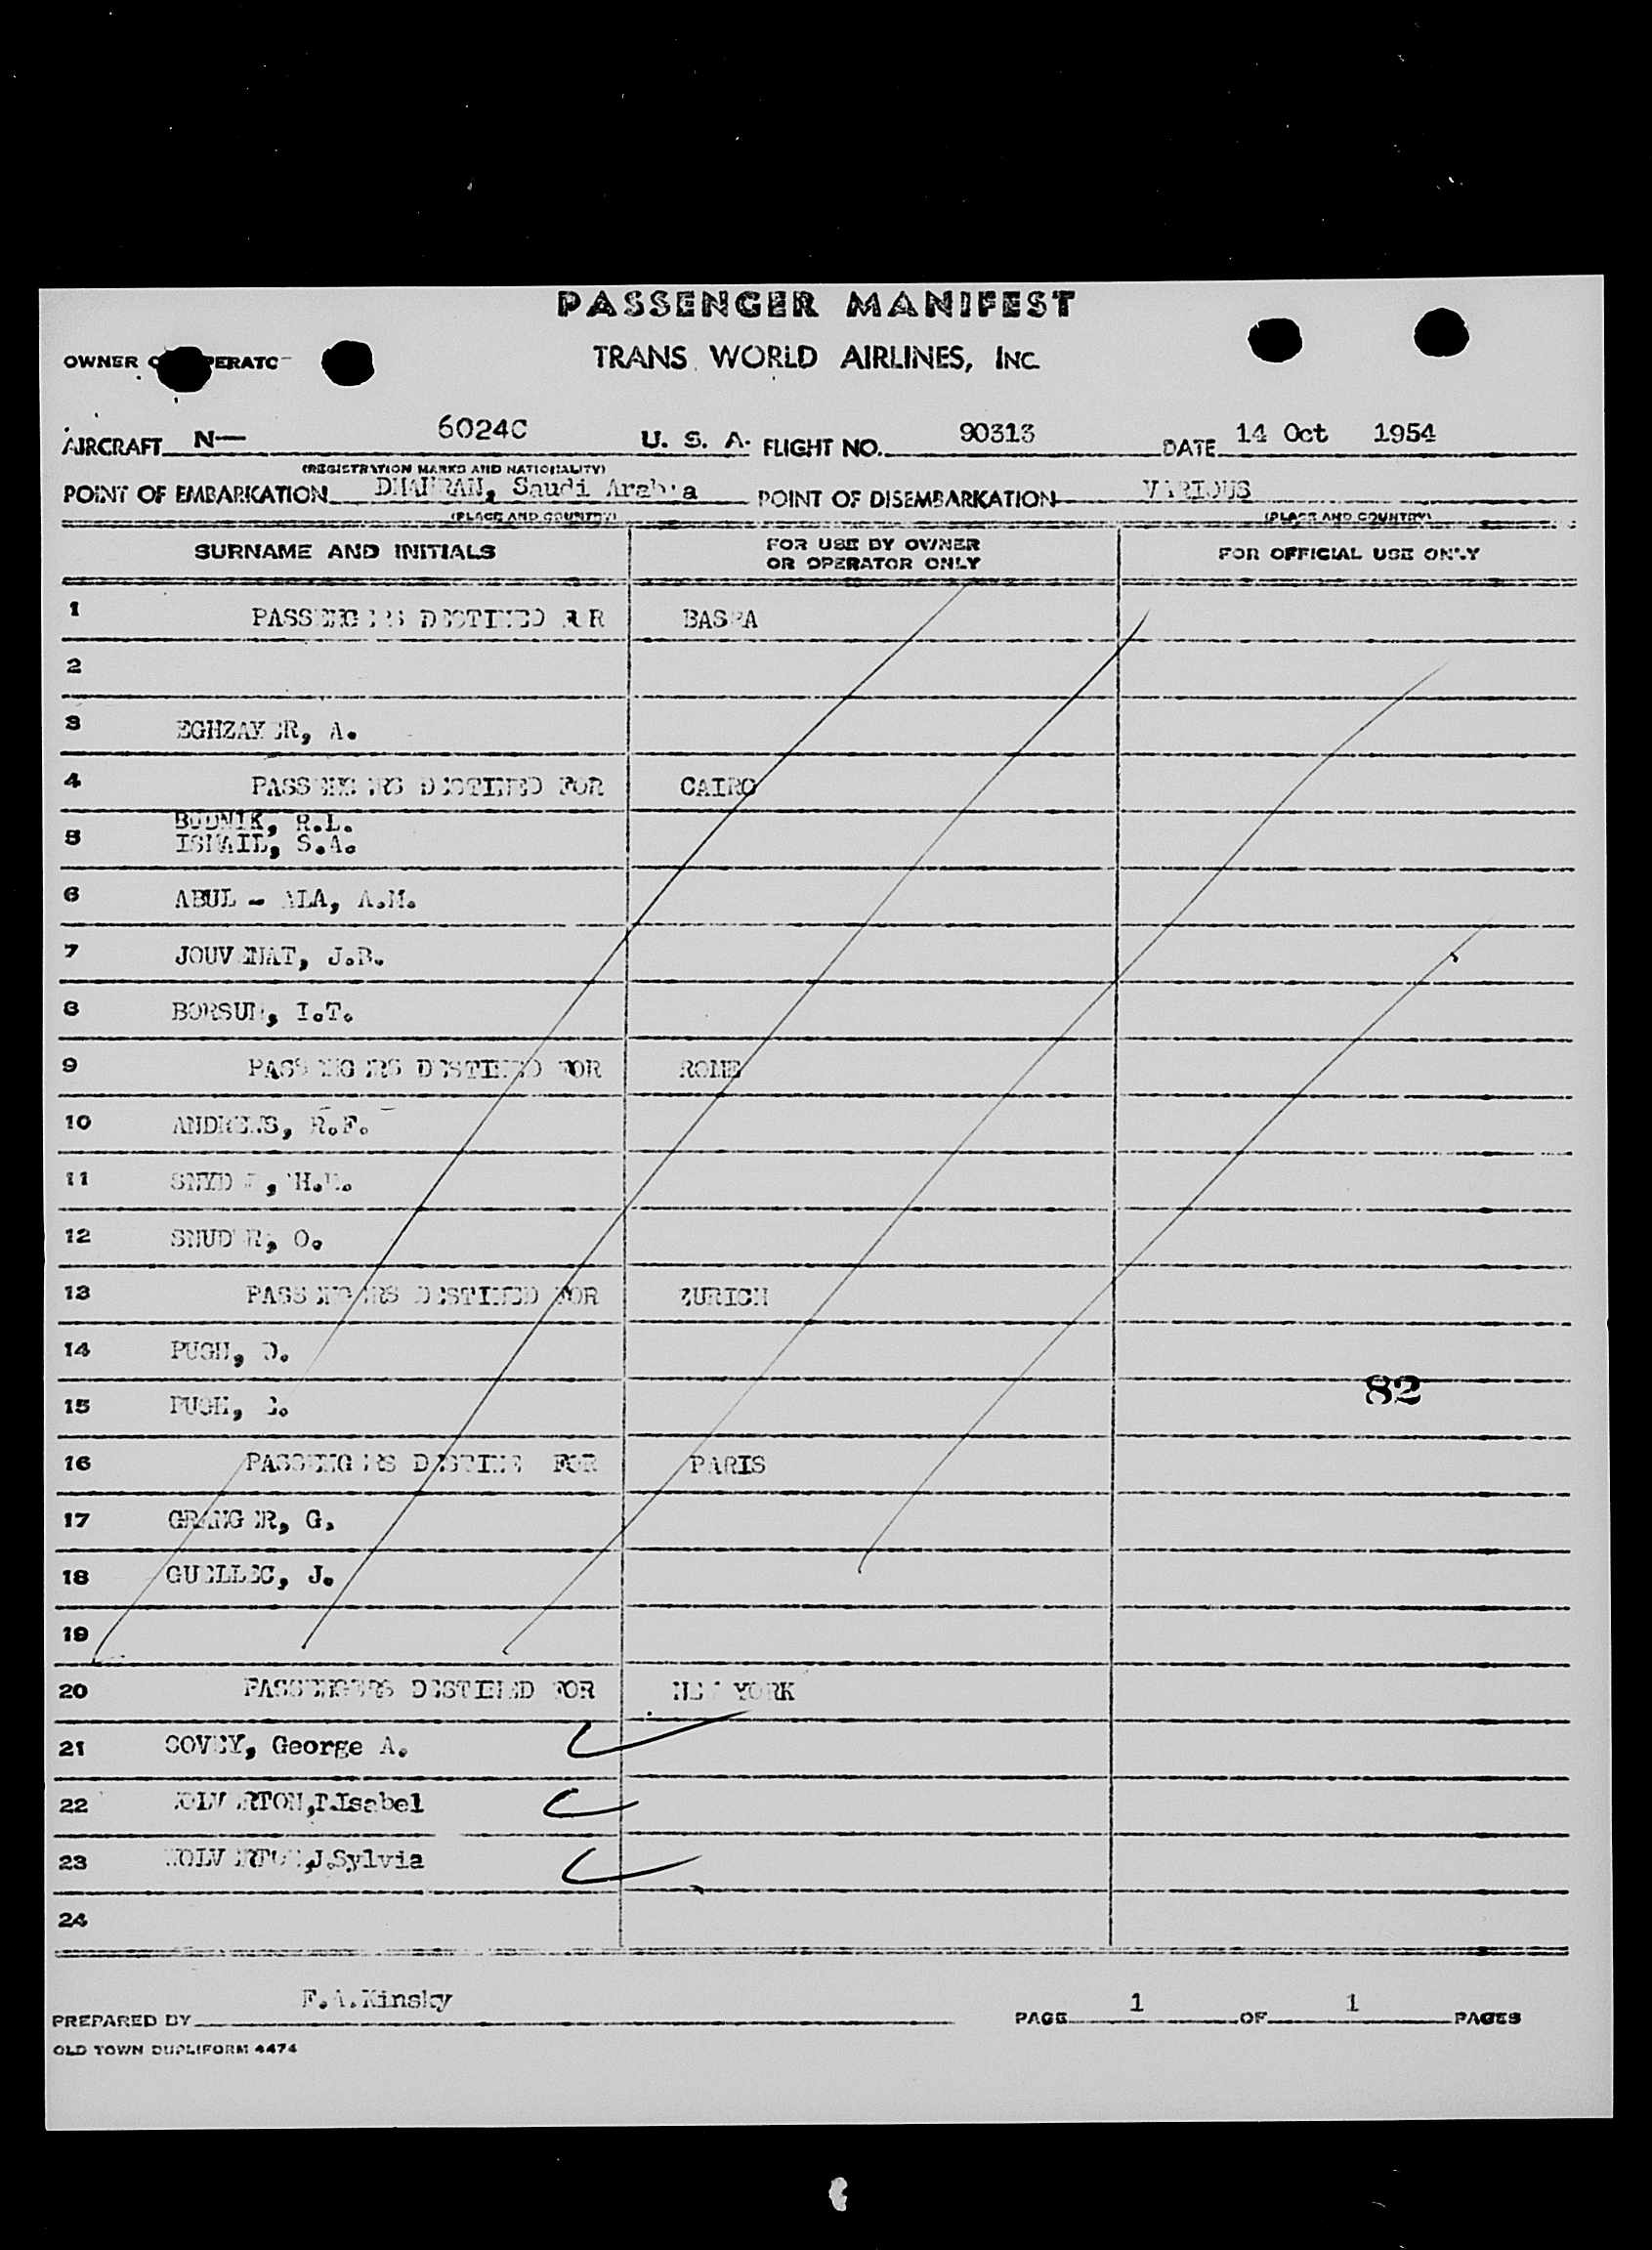 PASSENGER MANIFEST
OWNER OPERATOR TRANS WORLD AIRLINES, INC.
AIRCRAFT N— 6024C U. S. A. FLIGHT NO. 90313 DATE 14 Oct 1954
(REGISTRATION MARKS AND NATIONALITY)
POINT OF EMBARKATION DHAHRAN, Saudi Arabia POINT OF DISEMBARKATION VARIOUS
(PLACE AND COUNTRY) (PLACE AND COUNTRY)
SURNAME AND INITIALS FOR USE BY OWNER OR OPERATOR ONLY FOR OFFICIAL USE ONLY
1 PASSENGERS DESTINED FOR BASRA
2
3 EGHZAYER, A.
4 PASSENGERS DESTINED FOR CAIRO
BUDNIK, R.L.
5 ISMAIL, S.A.
6 ABUL - ALA, A.M.
7 JOUVENAT, J.B.
8 BORSUM, I.T.
9 PASSENGERS DESTINED FOR ROME
10 ANDREWS, R.F.
11 H.
12 O.
13 PASSENGERS DESTINED FOR ZURICH
14 PUGH, D.
82
15 PUGH,
16 PASSENGERS DESTINED FOR PARIS
17 GRANGER, G.
18 GUELLEC, J.
19
20 PASSENGERS DESTINED FOR NEW YORK
21 COVEY, George A.
22 WOLVERTON, Isabel
23 WOLVERTON, J.Sylvia
24
PREPARED BY F.A.Kinsky PAGE 1 OF 1 PAGES
OLD TOWN DUPLIFORM 4474